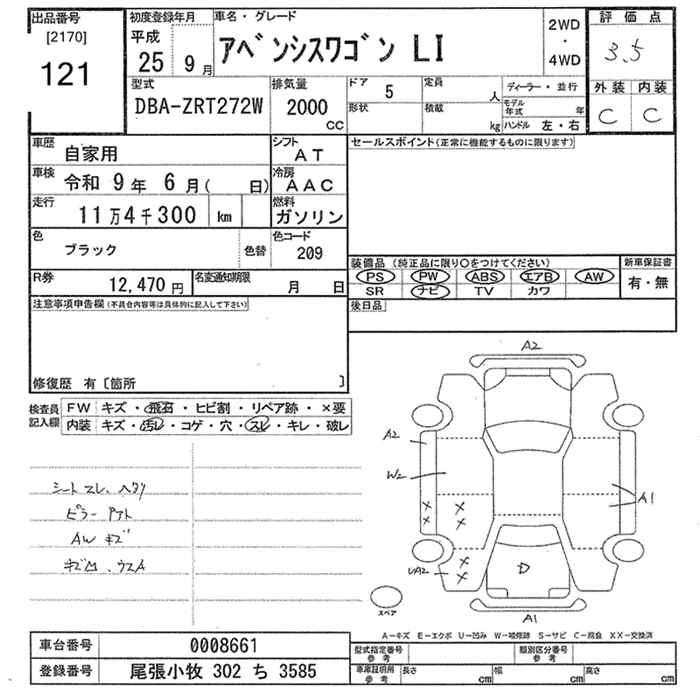 出品番号
[2170]
121
初度登録年月
平成
25 9月
車名・グレード
アベンシスワゴン LI
2WD
・
4WD
評価点
3.5
外装 内装
C C
型式
DBA-ZRT272W
排気量
2000
CC
ドア 5
形状
定員 人
積載 kg
ディーラー・並行
モデル年式 年
ハンドル 左・右
車歴 自家用
シフト AT
セールスポイント(正常に機能するものに限ります)
車検 令和 9年 6月( 日)
冷房 AAC
走行 11万4千300 km
燃料 ガソリン
色 ブラック 色替
色コード 209
装備品(純正品に限り○をつけてください)
PS PW ABS エアB AW
SR ナビ TV カワ
新車保証書
有・無
R券 12,470円
名変通知期限 月 日
後日品
注意事項申告欄(不具合内容等は具体的に記入して下さい)
修復歴 有〔箇所 〕
検査員記入欄
FW キズ・飛石・ヒビ割・リペア跡・×要
内装 キズ・汚レ・コゲ・穴・スレ・キレ・破レ
シートスレ、ヘタリ
ピラーアト
AW キズ
A2
A2
W2
A1
UA2
D
A1
スペア
A-キズ E-エクボ U-凹み W-補修跡 S-サビ C-腐食 XX-交換済
車台番号 0008661
登録番号 尾張小牧 302 ち 3585
型式指定番号 参考
類別区分番号 参考
車庫証明用 参考
長さ cm
幅 cm
高さ cm